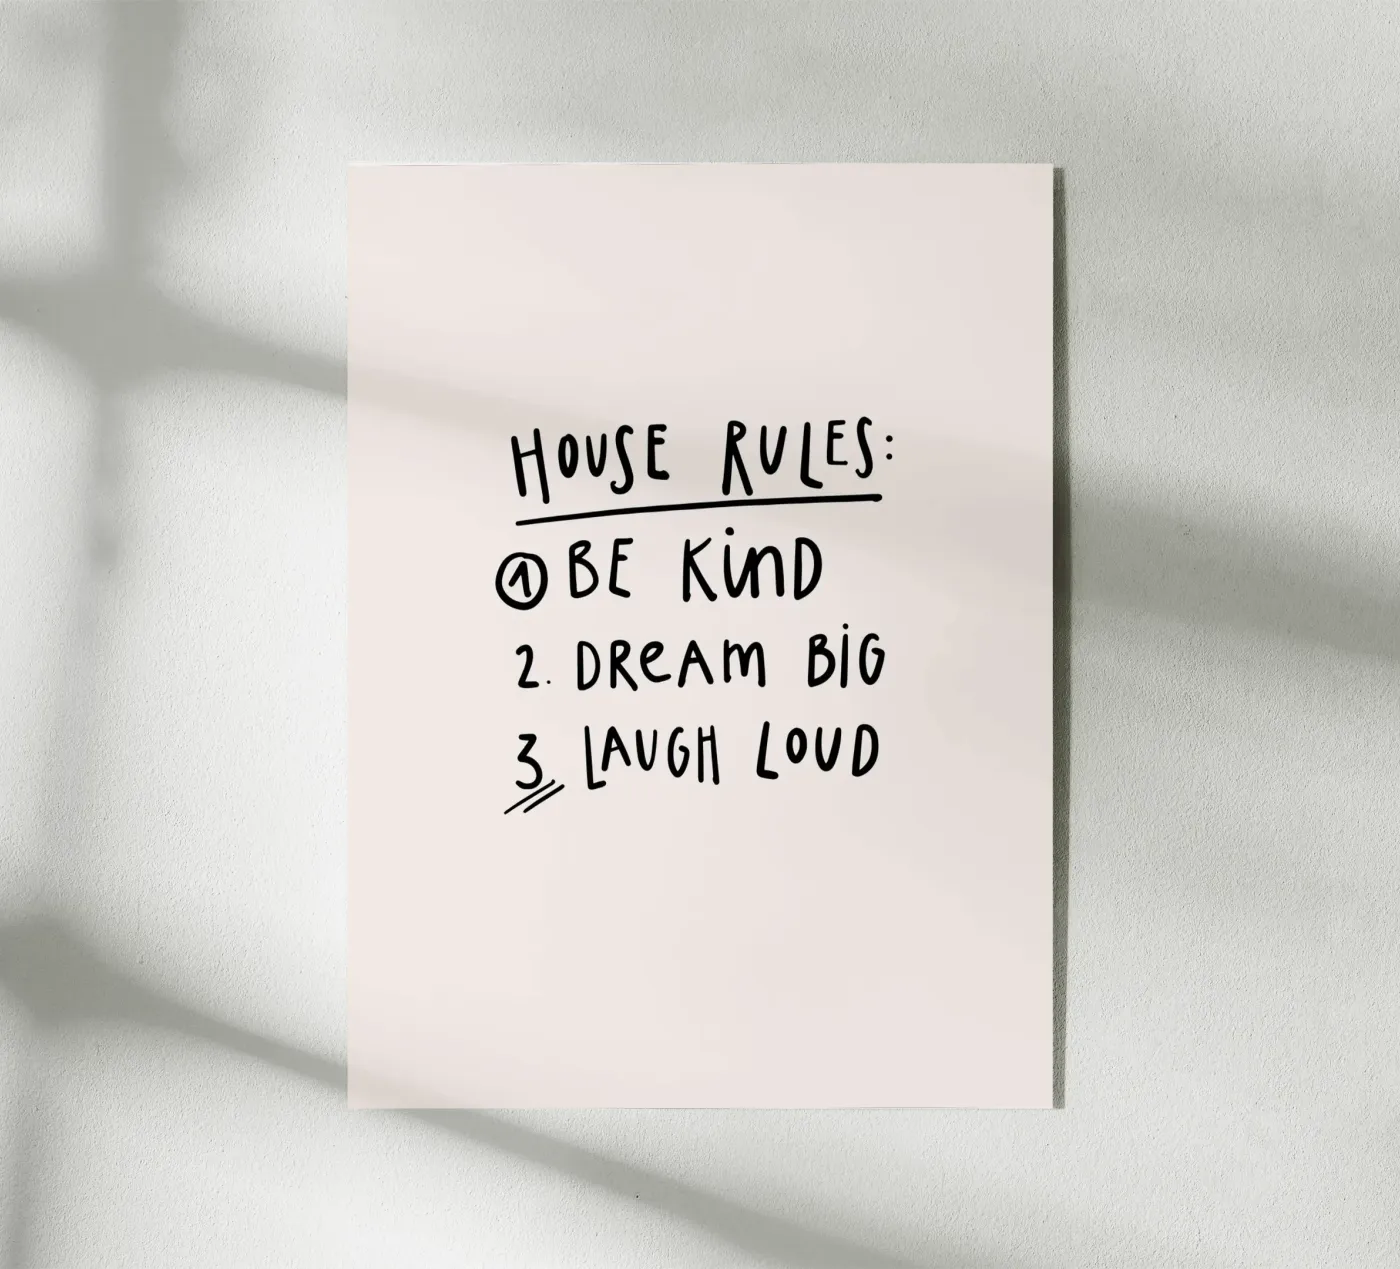 HOUSE RULES:
1 BE KiND
2. DReAM BiG
3 LAUGH LOUD